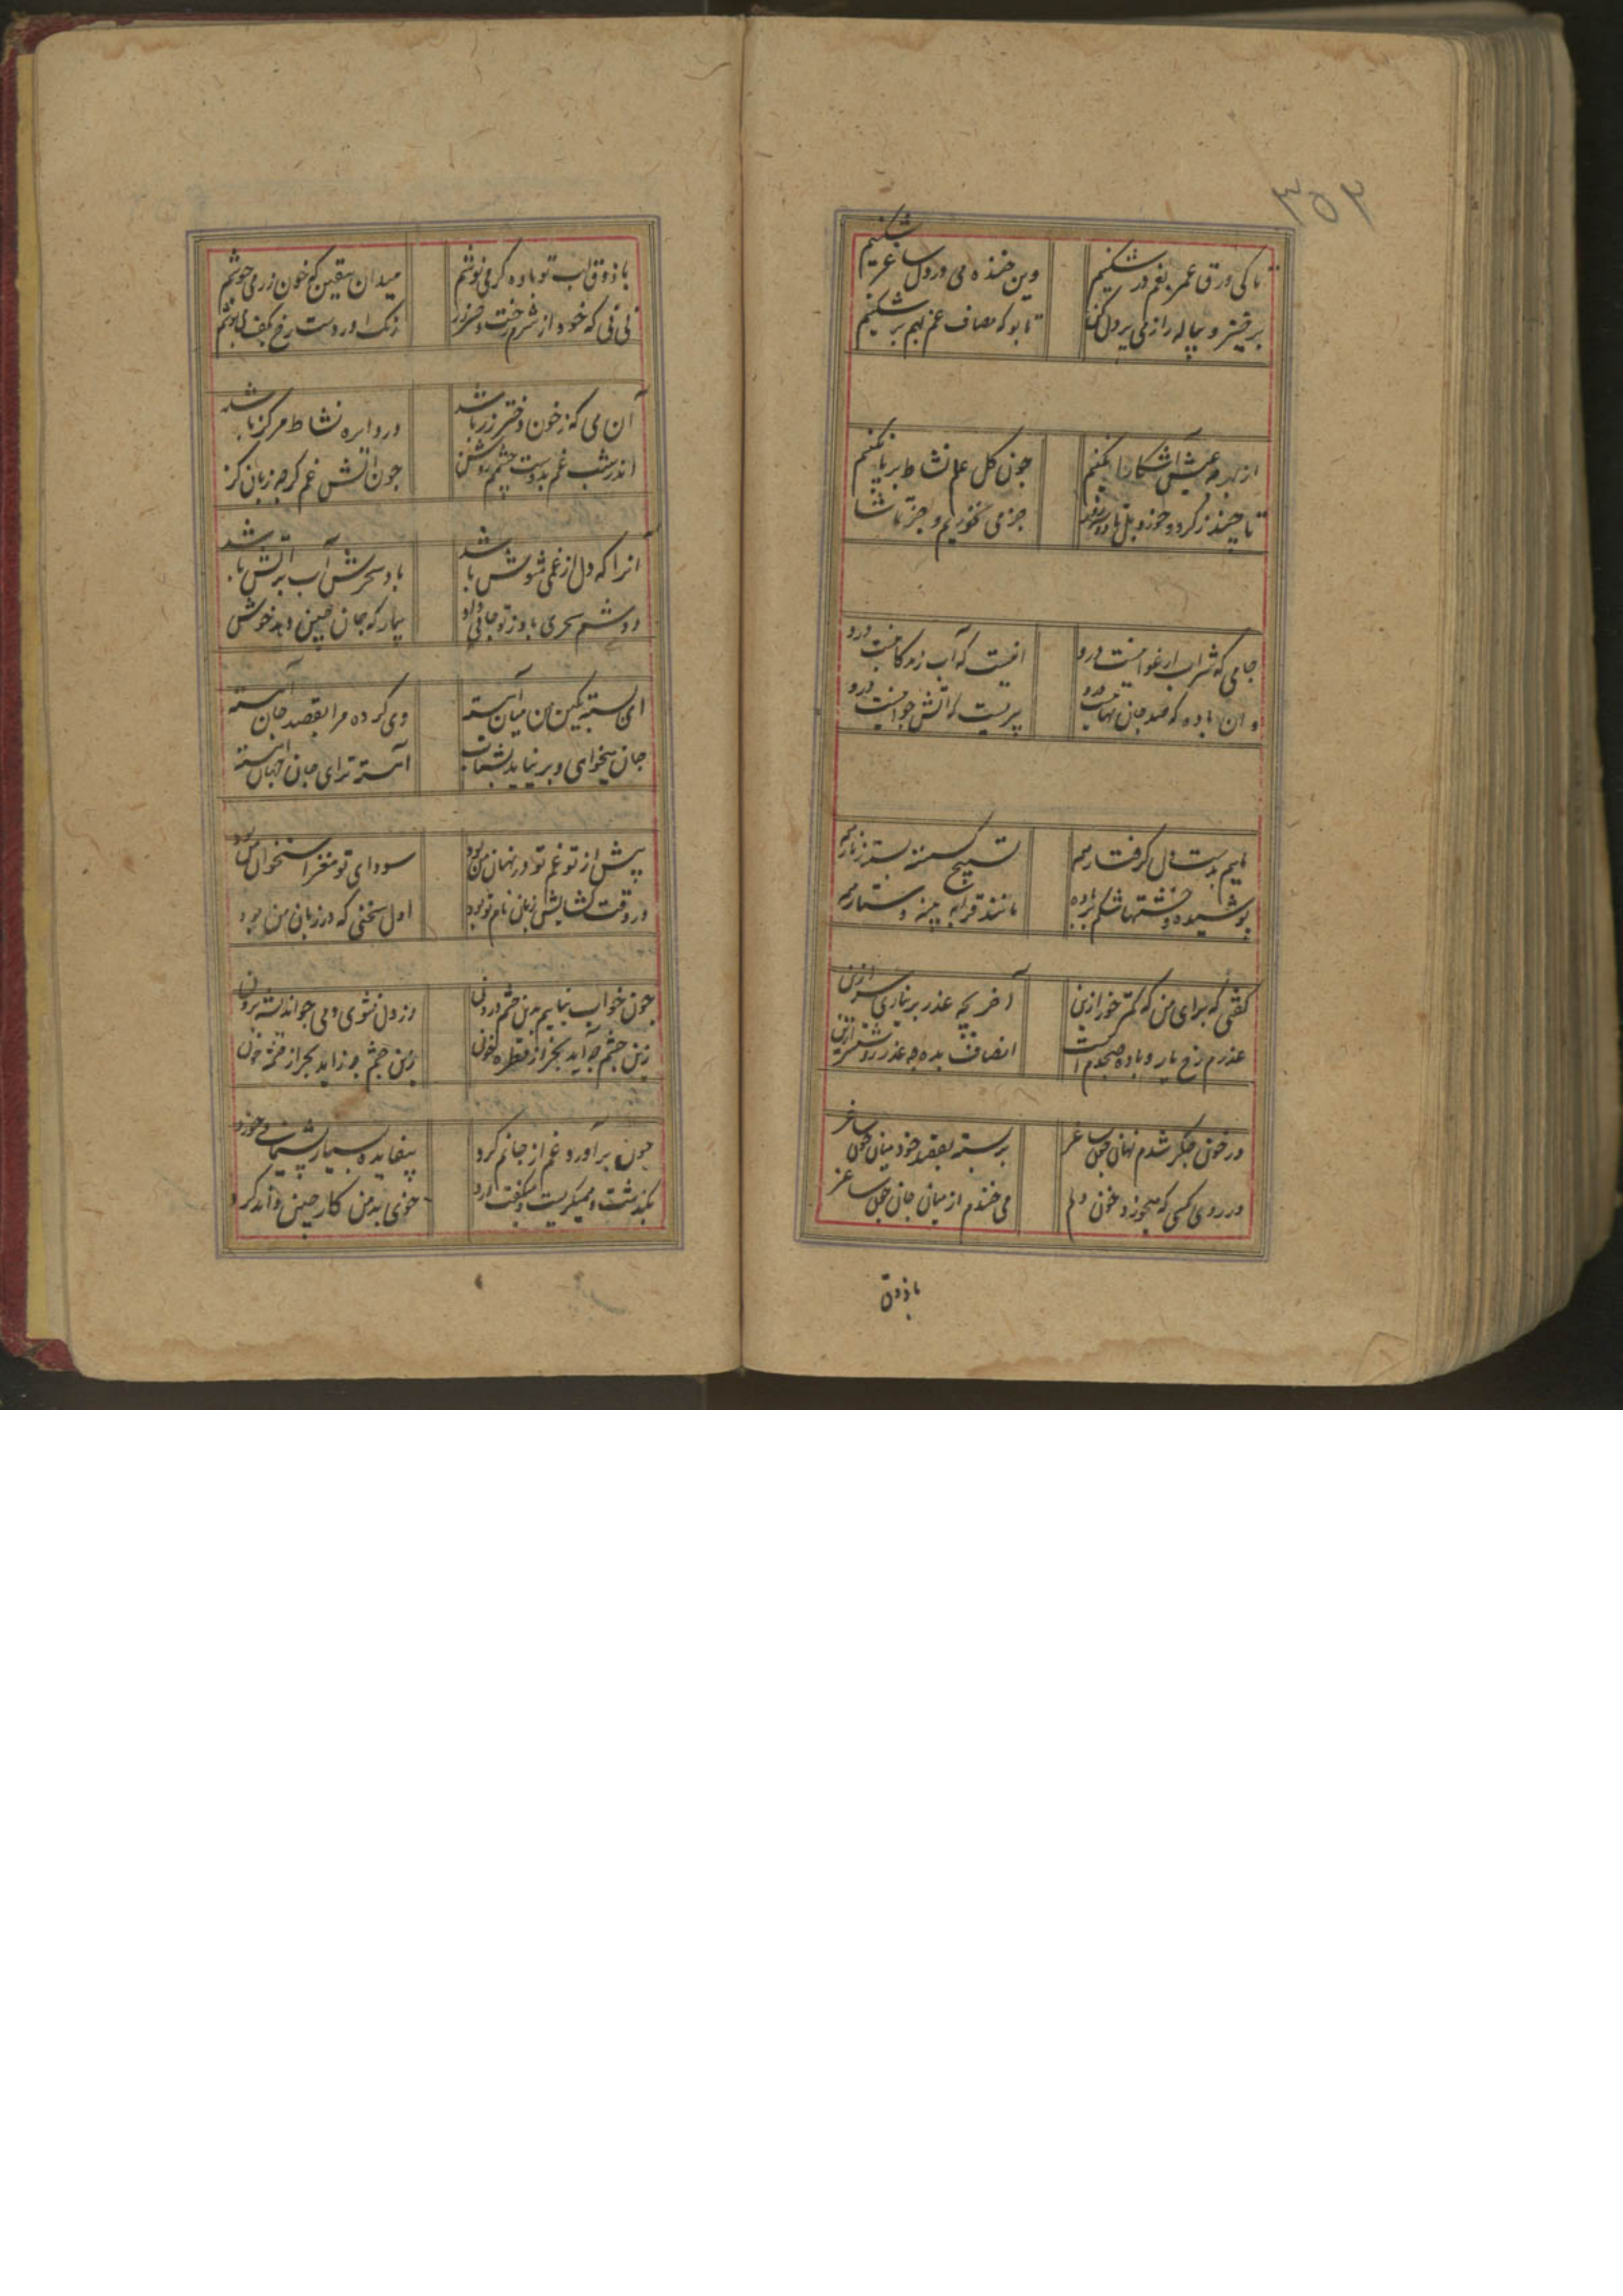 ۳۵۳
تا کی ورق عمر بغم در شکنیم
وین خنده می در دل ساغر شکنیم
برخیز و پیاله را ز می پر دل کن
تا بو که مصاف غم بهم بر شکنیم
چون گل علم نشاط بر پا نکنیم
جز می نخوریم و جز تماشا
جامی که شراب ارغوانیست درو
انیست که آب زندگانیست درو
و ان باده که صد جان نهانست درو
پیریست که آتش جوانیست درو
ماییم بدست دل گرفتار همه
تسبیح گسسته بسته زنار همه
پوشیده
مانند قرابه پنبه دستار همه
گفتی که برای من که کمتر خور ازین
آخر بچه عذر بر نیاری سر ازین
عذرم رخ یار و باده صبحدم است
انصاف بده چه عذر روشنتر ازین
در خون جگر شدم نهان چون ساغر
بر بسته بقصد خود میان چون ساغر
در روی کسی که میخورد خون دلم
می خندم از میان جان چون ساغر
با ذوق
با ذوق لب تو باده گر می نوشم
میدان بیقین که خون رز می جوشم
نی نی که خود از شرم رخت دختر رز
آن می که ز خون دختر رز باشد
در دایره نشاط مرکز باشد
اندر شب غم بدوست چشم روشن
چون آتش غم گرچه زبان گز
آنرا که دل از غمی مشوش باشد
باد سحرش آب بر آتش باشد
دوشم سحری باد ز تو جانی داد
بیمار که جان چنین دهد خوش
ای بسته بکین من میان آهسته
وی کرده مرا بقصد جان آهسته
جان میخواهی و بر نیاید بشتاب
آهسته تر ای جان جهان آهسته
پیش از تو غم تو در نهان من بود
سودای تو مغز استخوان من بود
در وقت گشایش زبان نام تو بود
اول سخنی که در زبان من بود
چون خواب نیاییم بدین چشم درون
وز دل نشوی دمی چو اندیشه برون
زین چشم چه آید بجز از قطره خون
چون بر آورد غم از جانم گرد
بیفایده بسیار پشیمانی خورد
بگذشت و میگریست و میگفت
خوی بد من کار چنین داند کرد